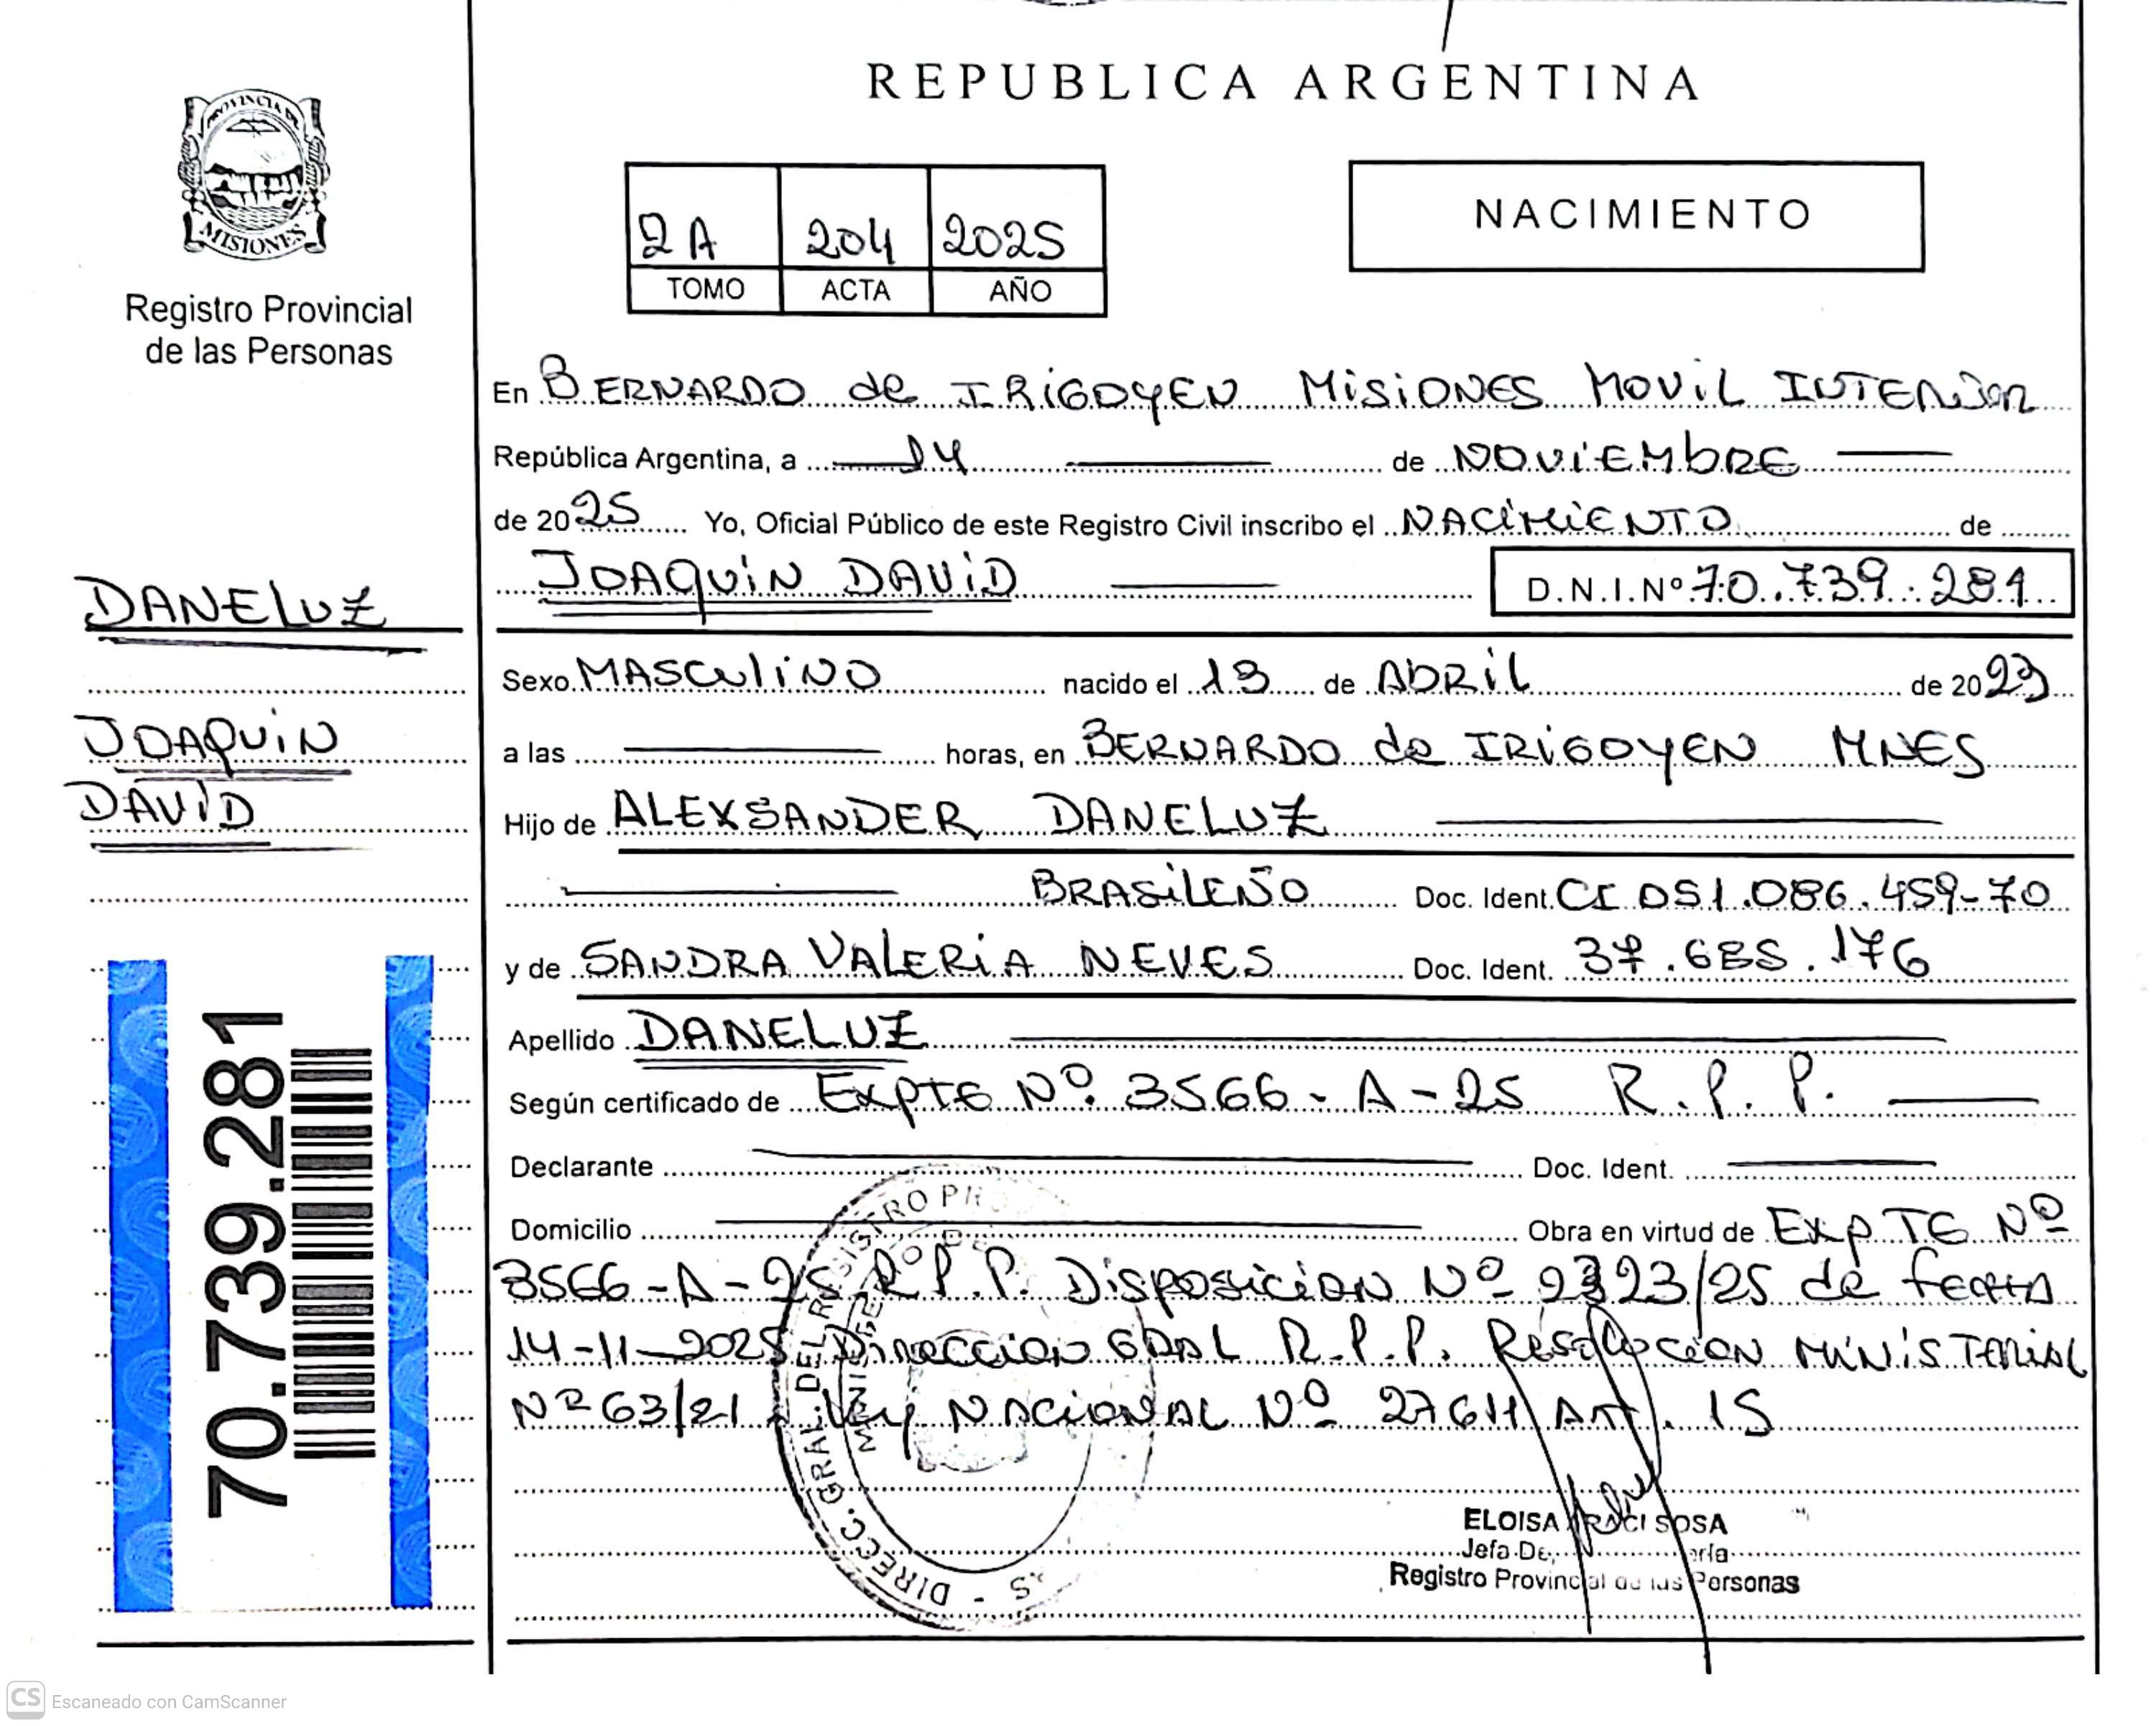 REPUBLICA ARGENTINA
PROVINCIA DE
MISIONES
Registro Provincial
de las Personas
2A 204 2025
TOMO ACTA AÑO
NACIMIENTO
En BERNARDO de IRiGOYEN MiSiONES MOViL INTERior
República Argentina, a 14 de NOViEMbRE
de 2025 Yo, Oficial Público de este Registro Civil inscribo el NACiMiENTO de
JOAQUiN DAViD D.N.I.Nº 70.739.281
DANELUZ
JOAQUiN
DAViD
Sexo MASCuliNO nacido el 13 de ABRiL de 2023
a las horas, en BERNARDO de IRiGOYEN MNES
Hijo de ALEXSANDER DANELUZ
BRASiLEÑO Doc. Ident. CI 051.086.459-70
y de SANDRA VALERiA NEVES Doc. Ident. 37.685.176
Apellido DANELUZ
Según certificado de EXPTE Nº 3566-A-25 R.P.P.
Declarante Doc. Ident.
Domicilio Obra en virtud de EXPTE Nº
3566-A-25 R.P.P. DisposiciON Nº 2323/25 de fecha
14-11-2025 Direccion GRAL R.P.P. Resolucion MiNiSTERiAL
Nº 63/21 Ley NACiONAL Nº 27611 Art. 15
70.739.281
DIRECC. GRAL. DEL REGISTRO PR
ELOISA SOSA
Jefa De
Registro Provincial de las Personas
CS Escaneado con CamScanner